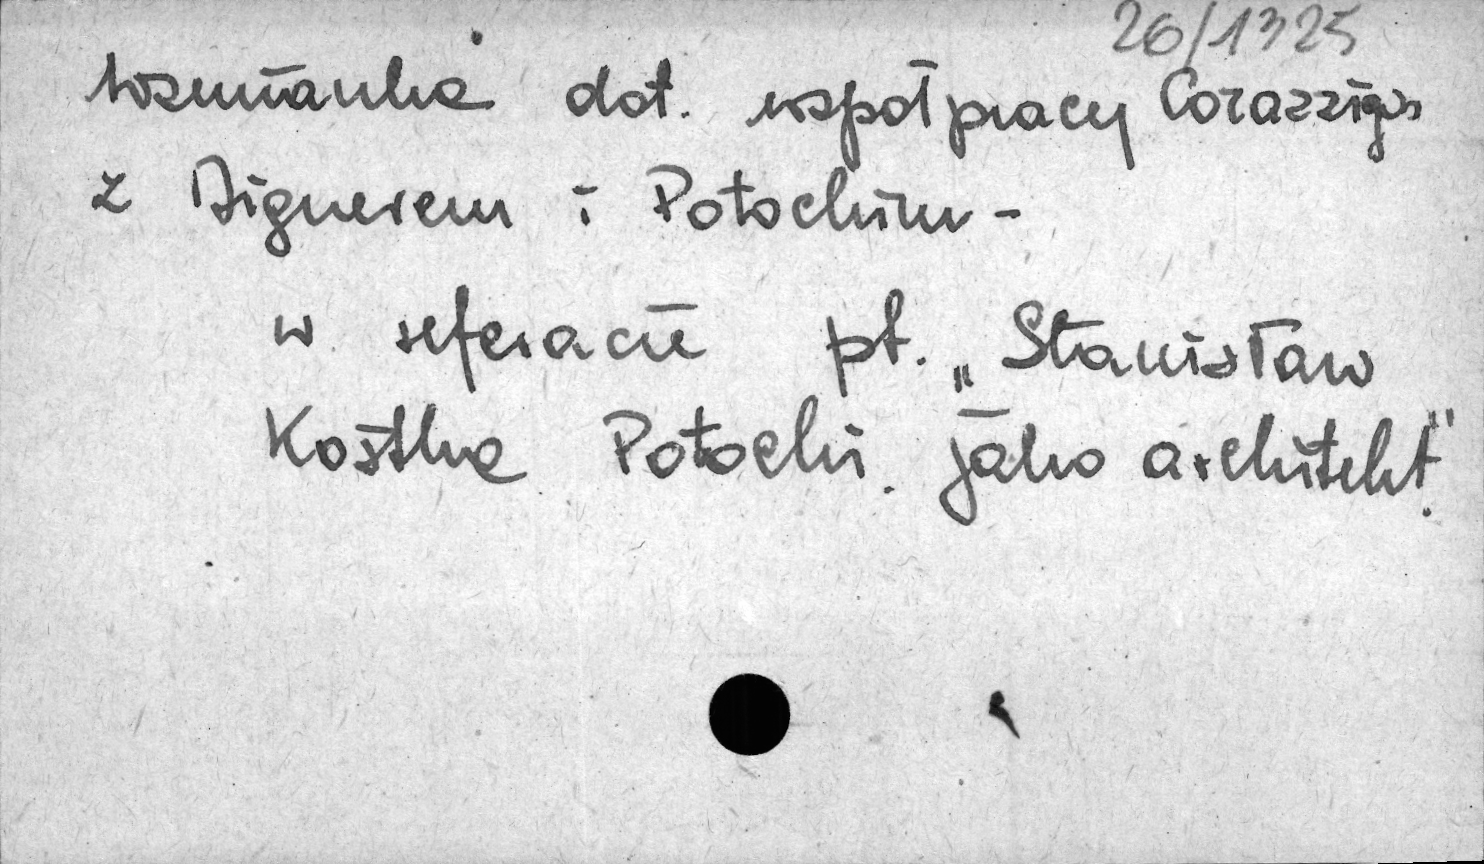 26/1325
Wzmianka dot. współpracy Corazziego
z Aignerem i Potockim -
w referacie pt. „Stanisław
Kostka Potocki jako architekt".